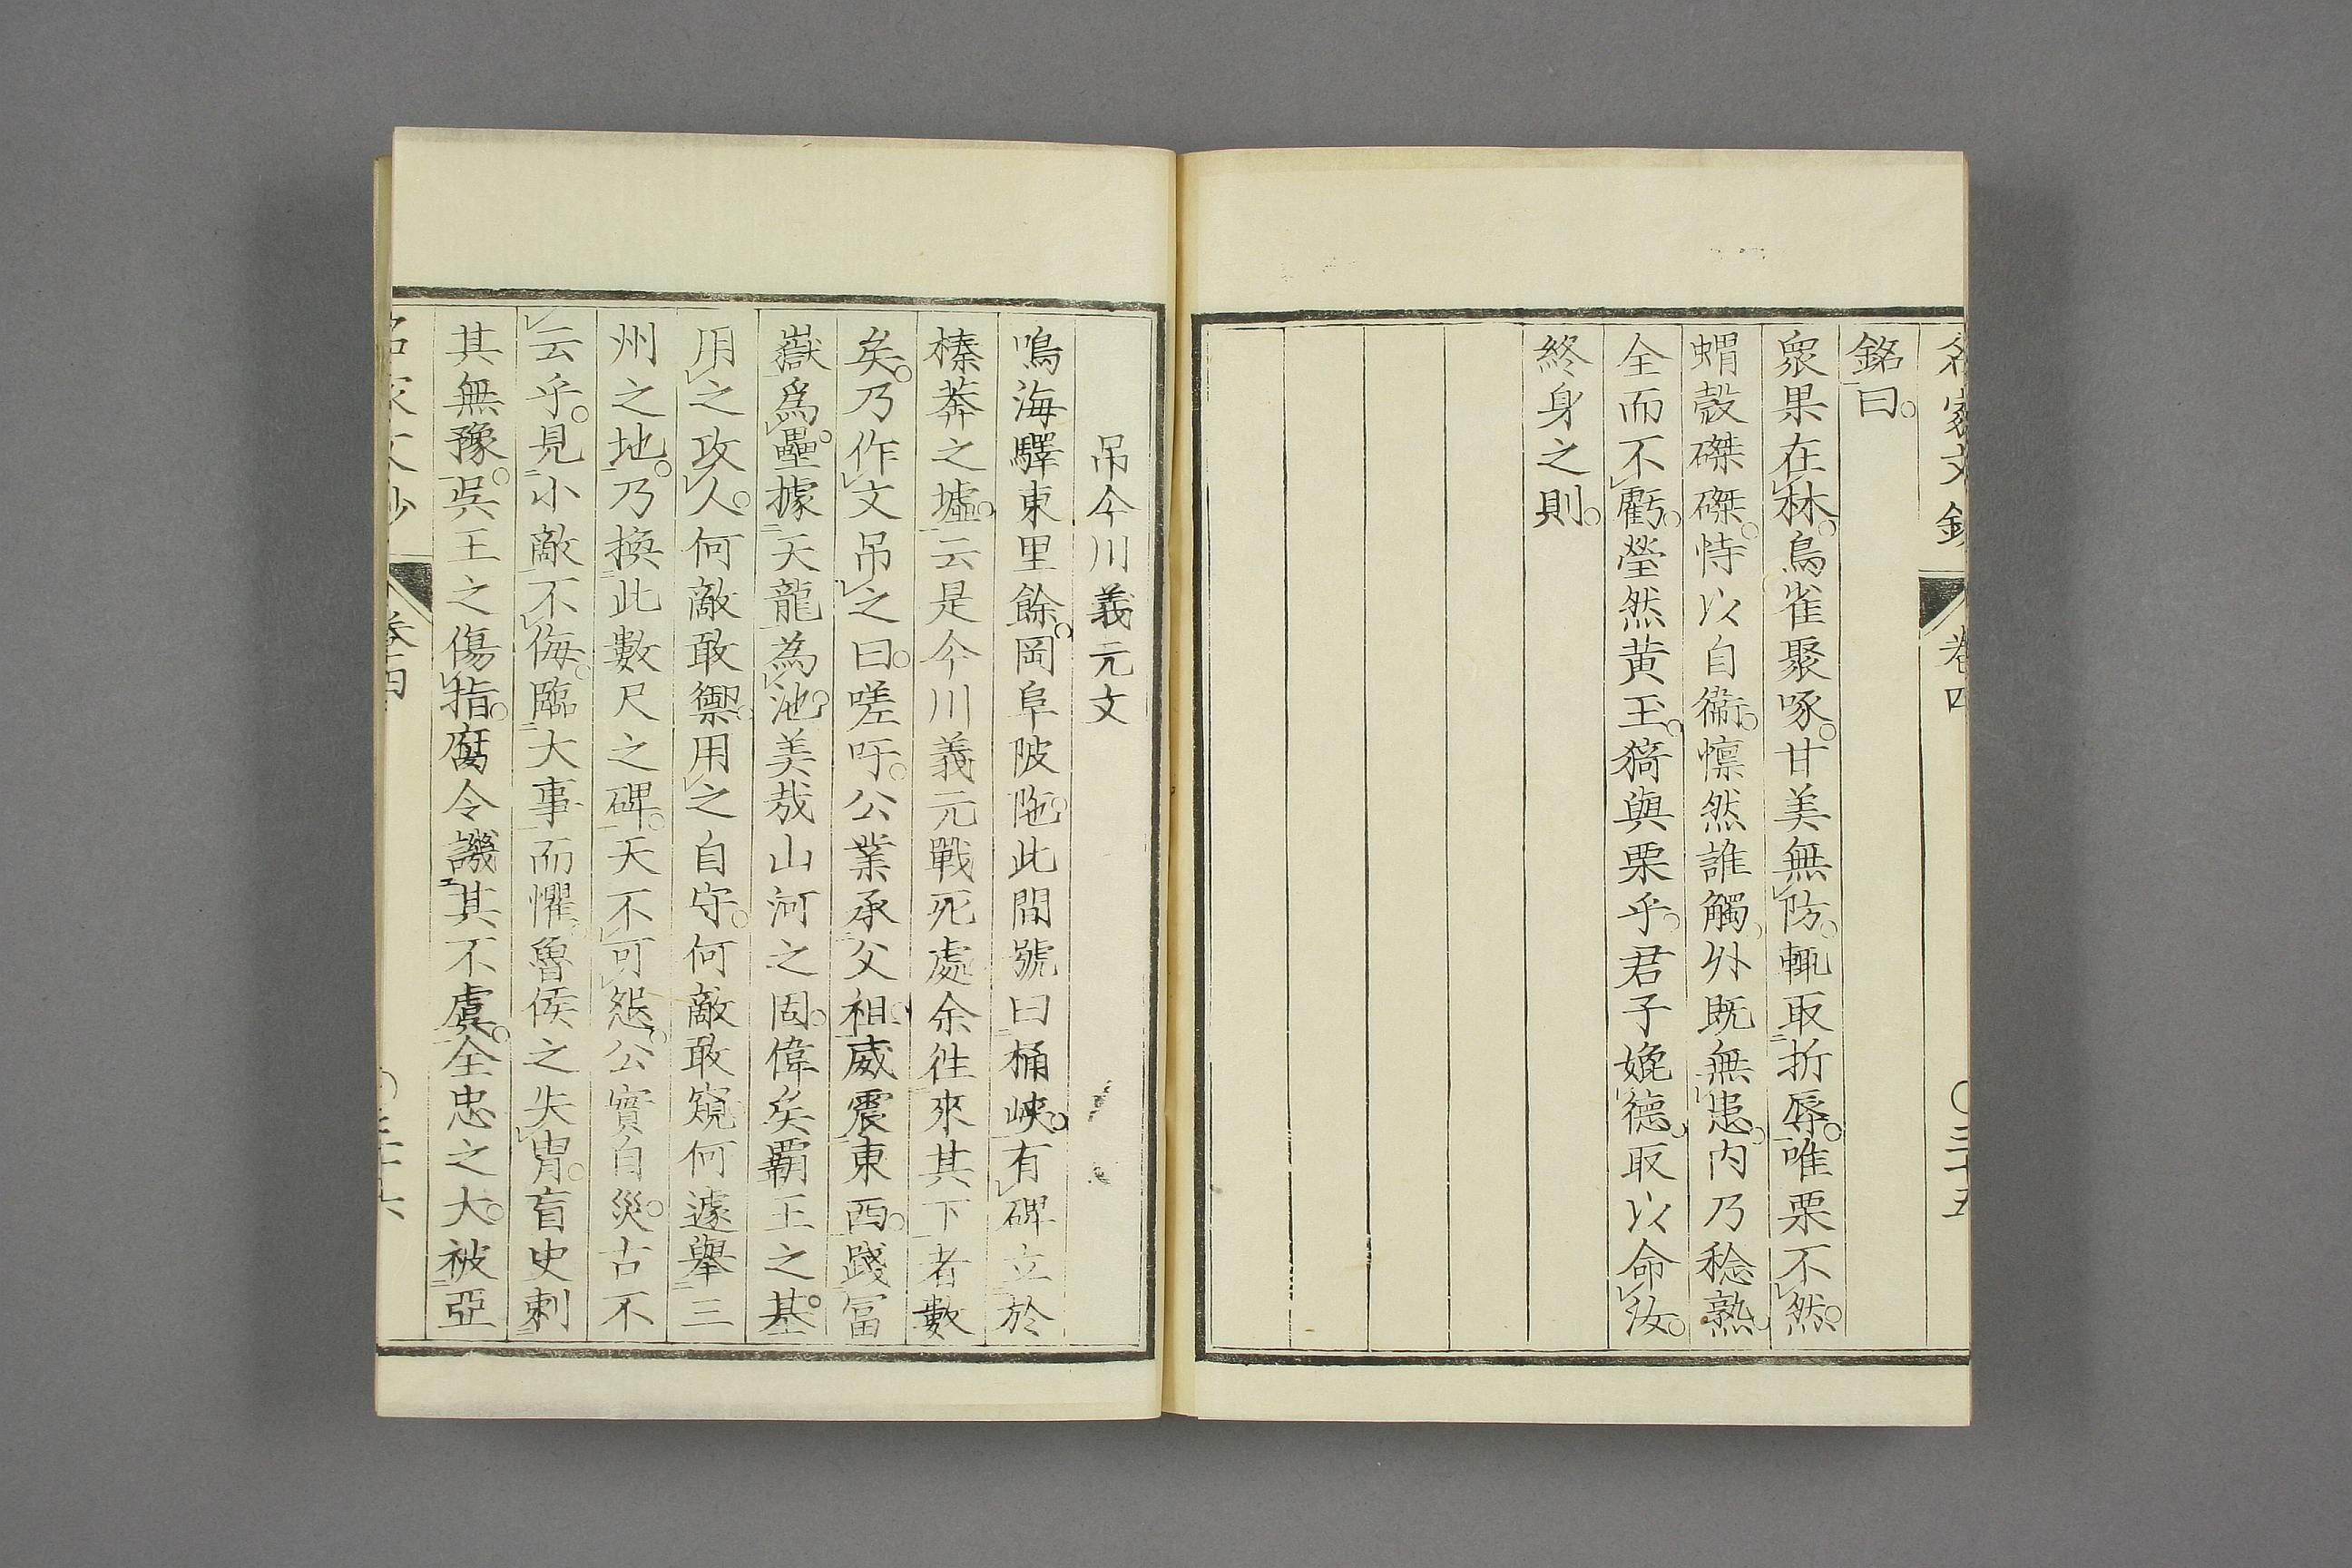 名家文鈔 卷四 〇三十五
銘曰。
衆果在林。鳥雀聚啄。甘美無防。輒取折辱。唯栗不然。
蝟殼磔磔。恃以自衞。懍然誰觸。外既無患。内乃稔熟。
全而不虧。瑩然黄玉。猗與栗乎。君子媲德。取以命汝。
終身之則。
吊今川義元文
鳴海驛東里餘。岡阜陂陁。此間號曰桶峽。有碑立於
榛莽之墟。云是今川義元戰死處。余往來其下者數
矣。乃作文吊之曰。嗟吁。公業承父祖。威震東西。踐冨
嶽爲壘。據天龍為池。美哉山河之固。偉矣覇王之基。
用之攻人。何敵敢禦。用之自守。何敵敢窺。何遽舉三
州之地。乃換此數尺之碑。天不可怨。公實自災。古不
云乎。見小敵不侮。臨大事而懼。魯侯之失冑。盲史刺
其無豫。吳王之傷指。腐令譏其不虞。全忠之大。被亞
名家文鈔 卷四 〇三十六